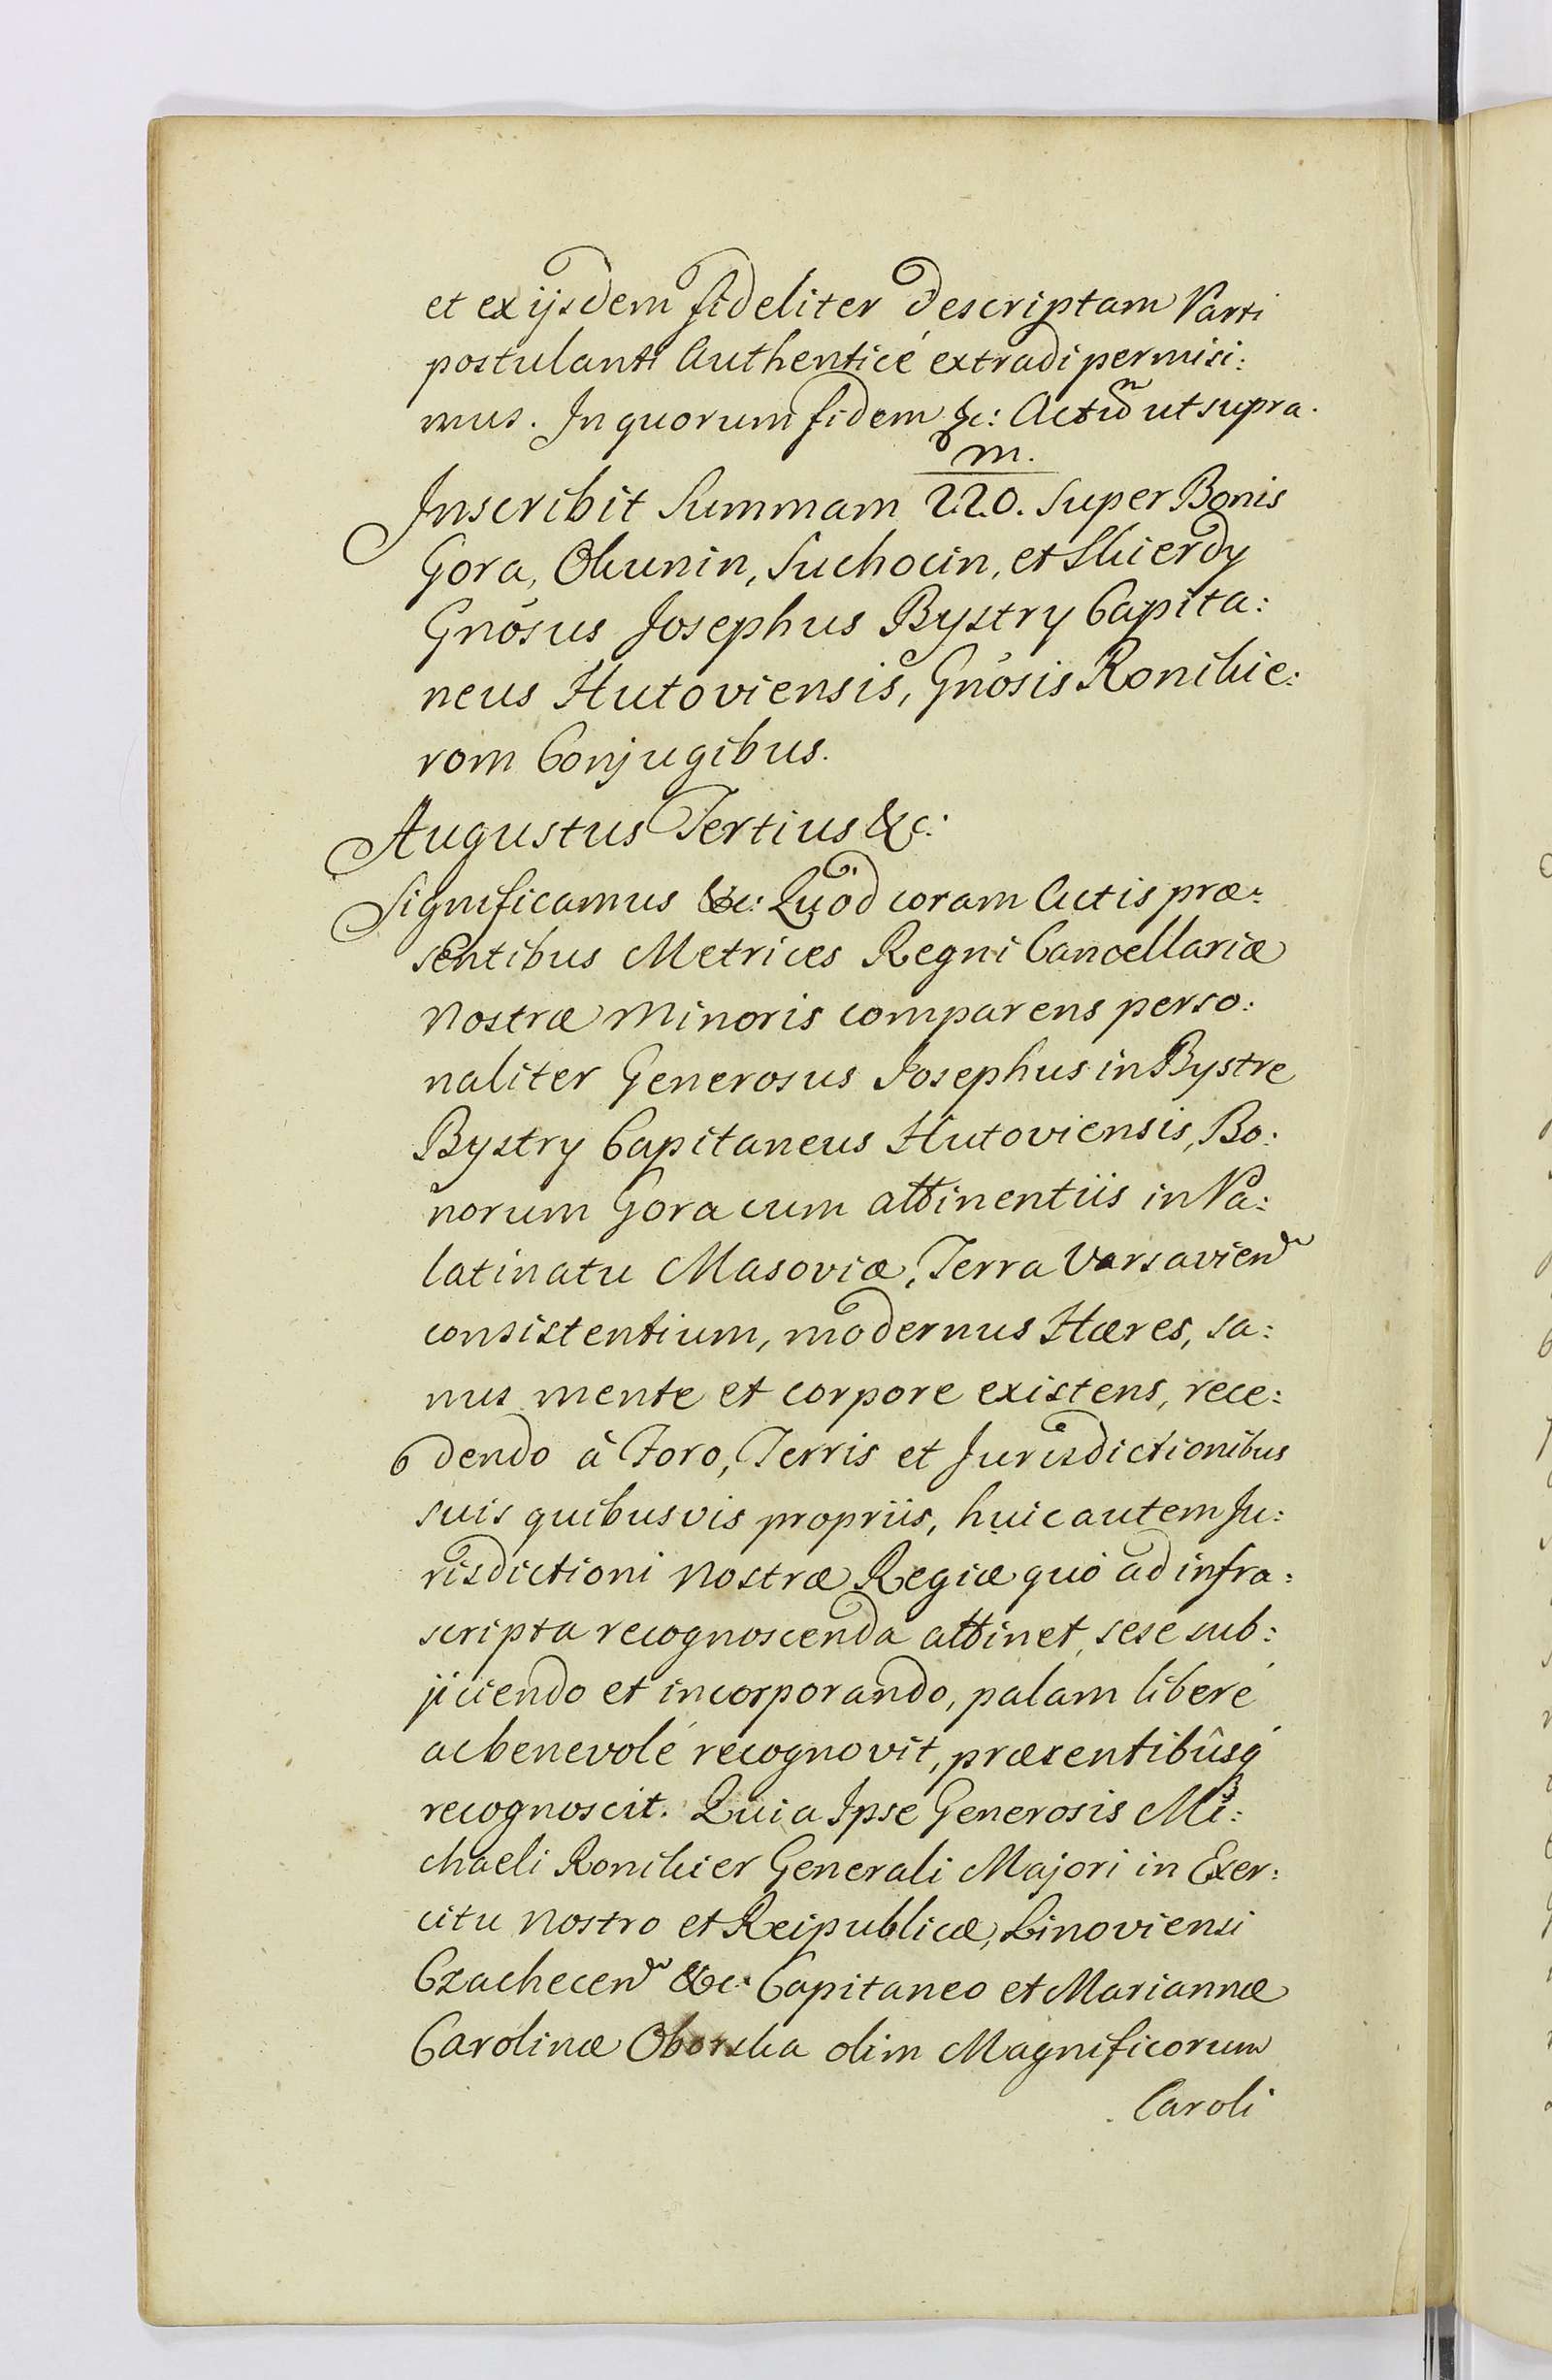 et ex ijsdem fideliter descriptam Parti
postulanti Authenticé extradi permisi:
mus. In quorum fidem &c: Actũ ut supra.
m.
Inscribit Summam 220. super Bonis
Gora, Okunin, Suchocin, et Skierdy
Gnõsus Josephus Bystry Capita:
neus Hutoviensis, Gnõsis Ronikie:
rom Conjugibus.
Augustus Tertius &c:
Significamus &c: Quod coram Actis præ:
sentibus Metrices Regni Cancellariæ
Nostræ Minoris comparens perso:
naliter Generosus Josephus in Bystre
Bystry Capitaneus Hutoviensis, Bo:
norum Gora cum attinentiis in Pa:
latinatu Masoviæ, Terra Varsavien
consistentium, modernus Hæres, sa:
nus mente et corpore existens, rece:
dendo à Foro, Terris et Jurisdictionibus
suis quibusvis propriis, huic autem Ju:
risdictioni Nostræ Regiæ quó ad infra:
scripta recognoscenda attinet, sese sub:
jiciendo et incorporando, palam liberé
ac benevolé recognovit, præsentibûsq́
recognoscit. Quia Ipse Generosis Mi:
chaeli Ronikier Generali Majori in Exer:
citu Nostro et Reipublicæ, Linoviensi
Czachecen &c: Capitaneo et Mariannæ
Carolinæ Oborska olim Magnificorum
Caroli